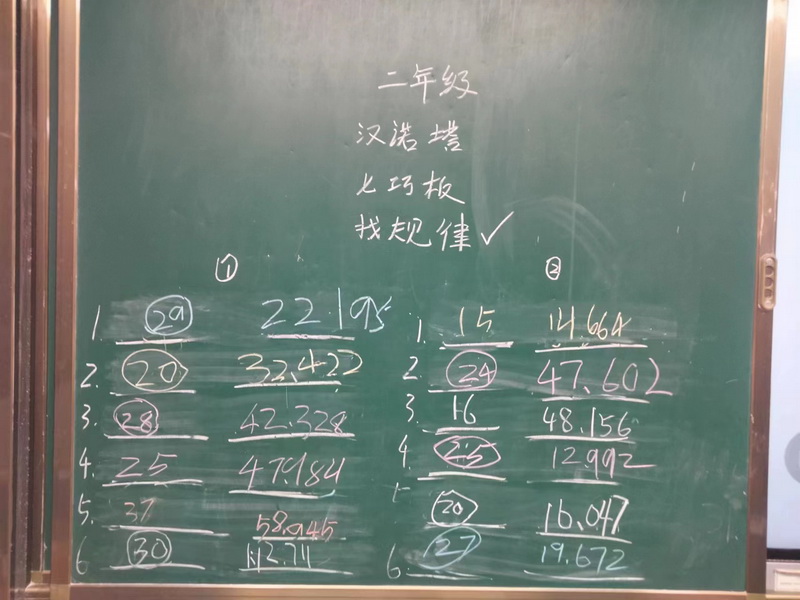 二年级
汉诺塔
七巧板
找规律✓
① ②
1. 29 22.195 1. 15 14.664
2. 20 32.422 2. 24 47.602
3. 28 42.328 3. 16 48.156
4. 25 47.984 4. 25 12.992
5. 37 58.945 20 16.047
6 30 1:12.711 6. 27 19.672